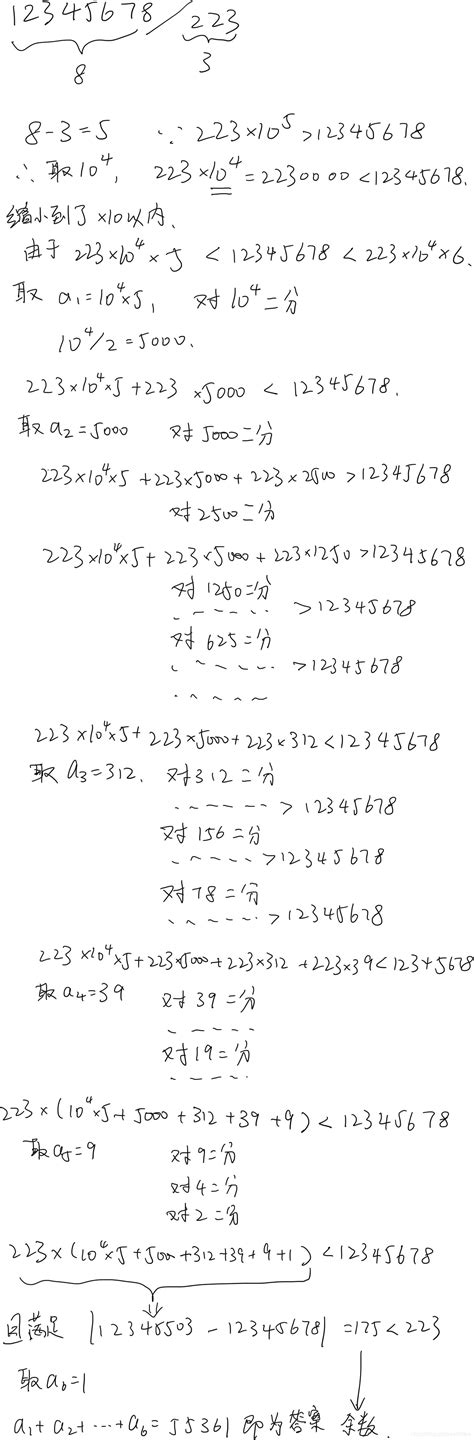 12345678 / 223
8 3
8-3=5 ∵ 223×10⁵>12345678
∴ 取10⁴, 223×10⁴=2230000<12345678.
缩小到了×10以内.
由于 223×10⁴×5 < 12345678 < 223×10⁴×6.
取 a₁=10⁴×5, 对10⁴二分
10⁴/2=5000.
223×10⁴×5+223×5000 < 12345678.
取a₂=5000 对5000二分
223×10⁴×5+223×5000+223×2500>12345678
对2500二分
223×10⁴×5+223×5000+223×1250>12345678
对1250二分
------ >12345678
对625二分
------ >12345678
-----
223×10⁴×5+223×5000+223×312<12345678
取a₃=312. 对312二分
------ >12345678
对156二分
------ >12345678
对78二分
------ >12345678
223×10⁴×5+223×5000+223×312+223×39<12345678
取a₄=39 对39二分
------
对19二分
-----
223×(10⁴×5+5000+312+39+9)<12345678
取a₅=9 对9二分
对4二分
对2二分
223×(10⁴×5+5000+312+39+9+1)<12345678
且满足 |12345503-12345678|=175<223
取a₆=1
a₁+a₂+…+a₆=55361 即为答案 余数.